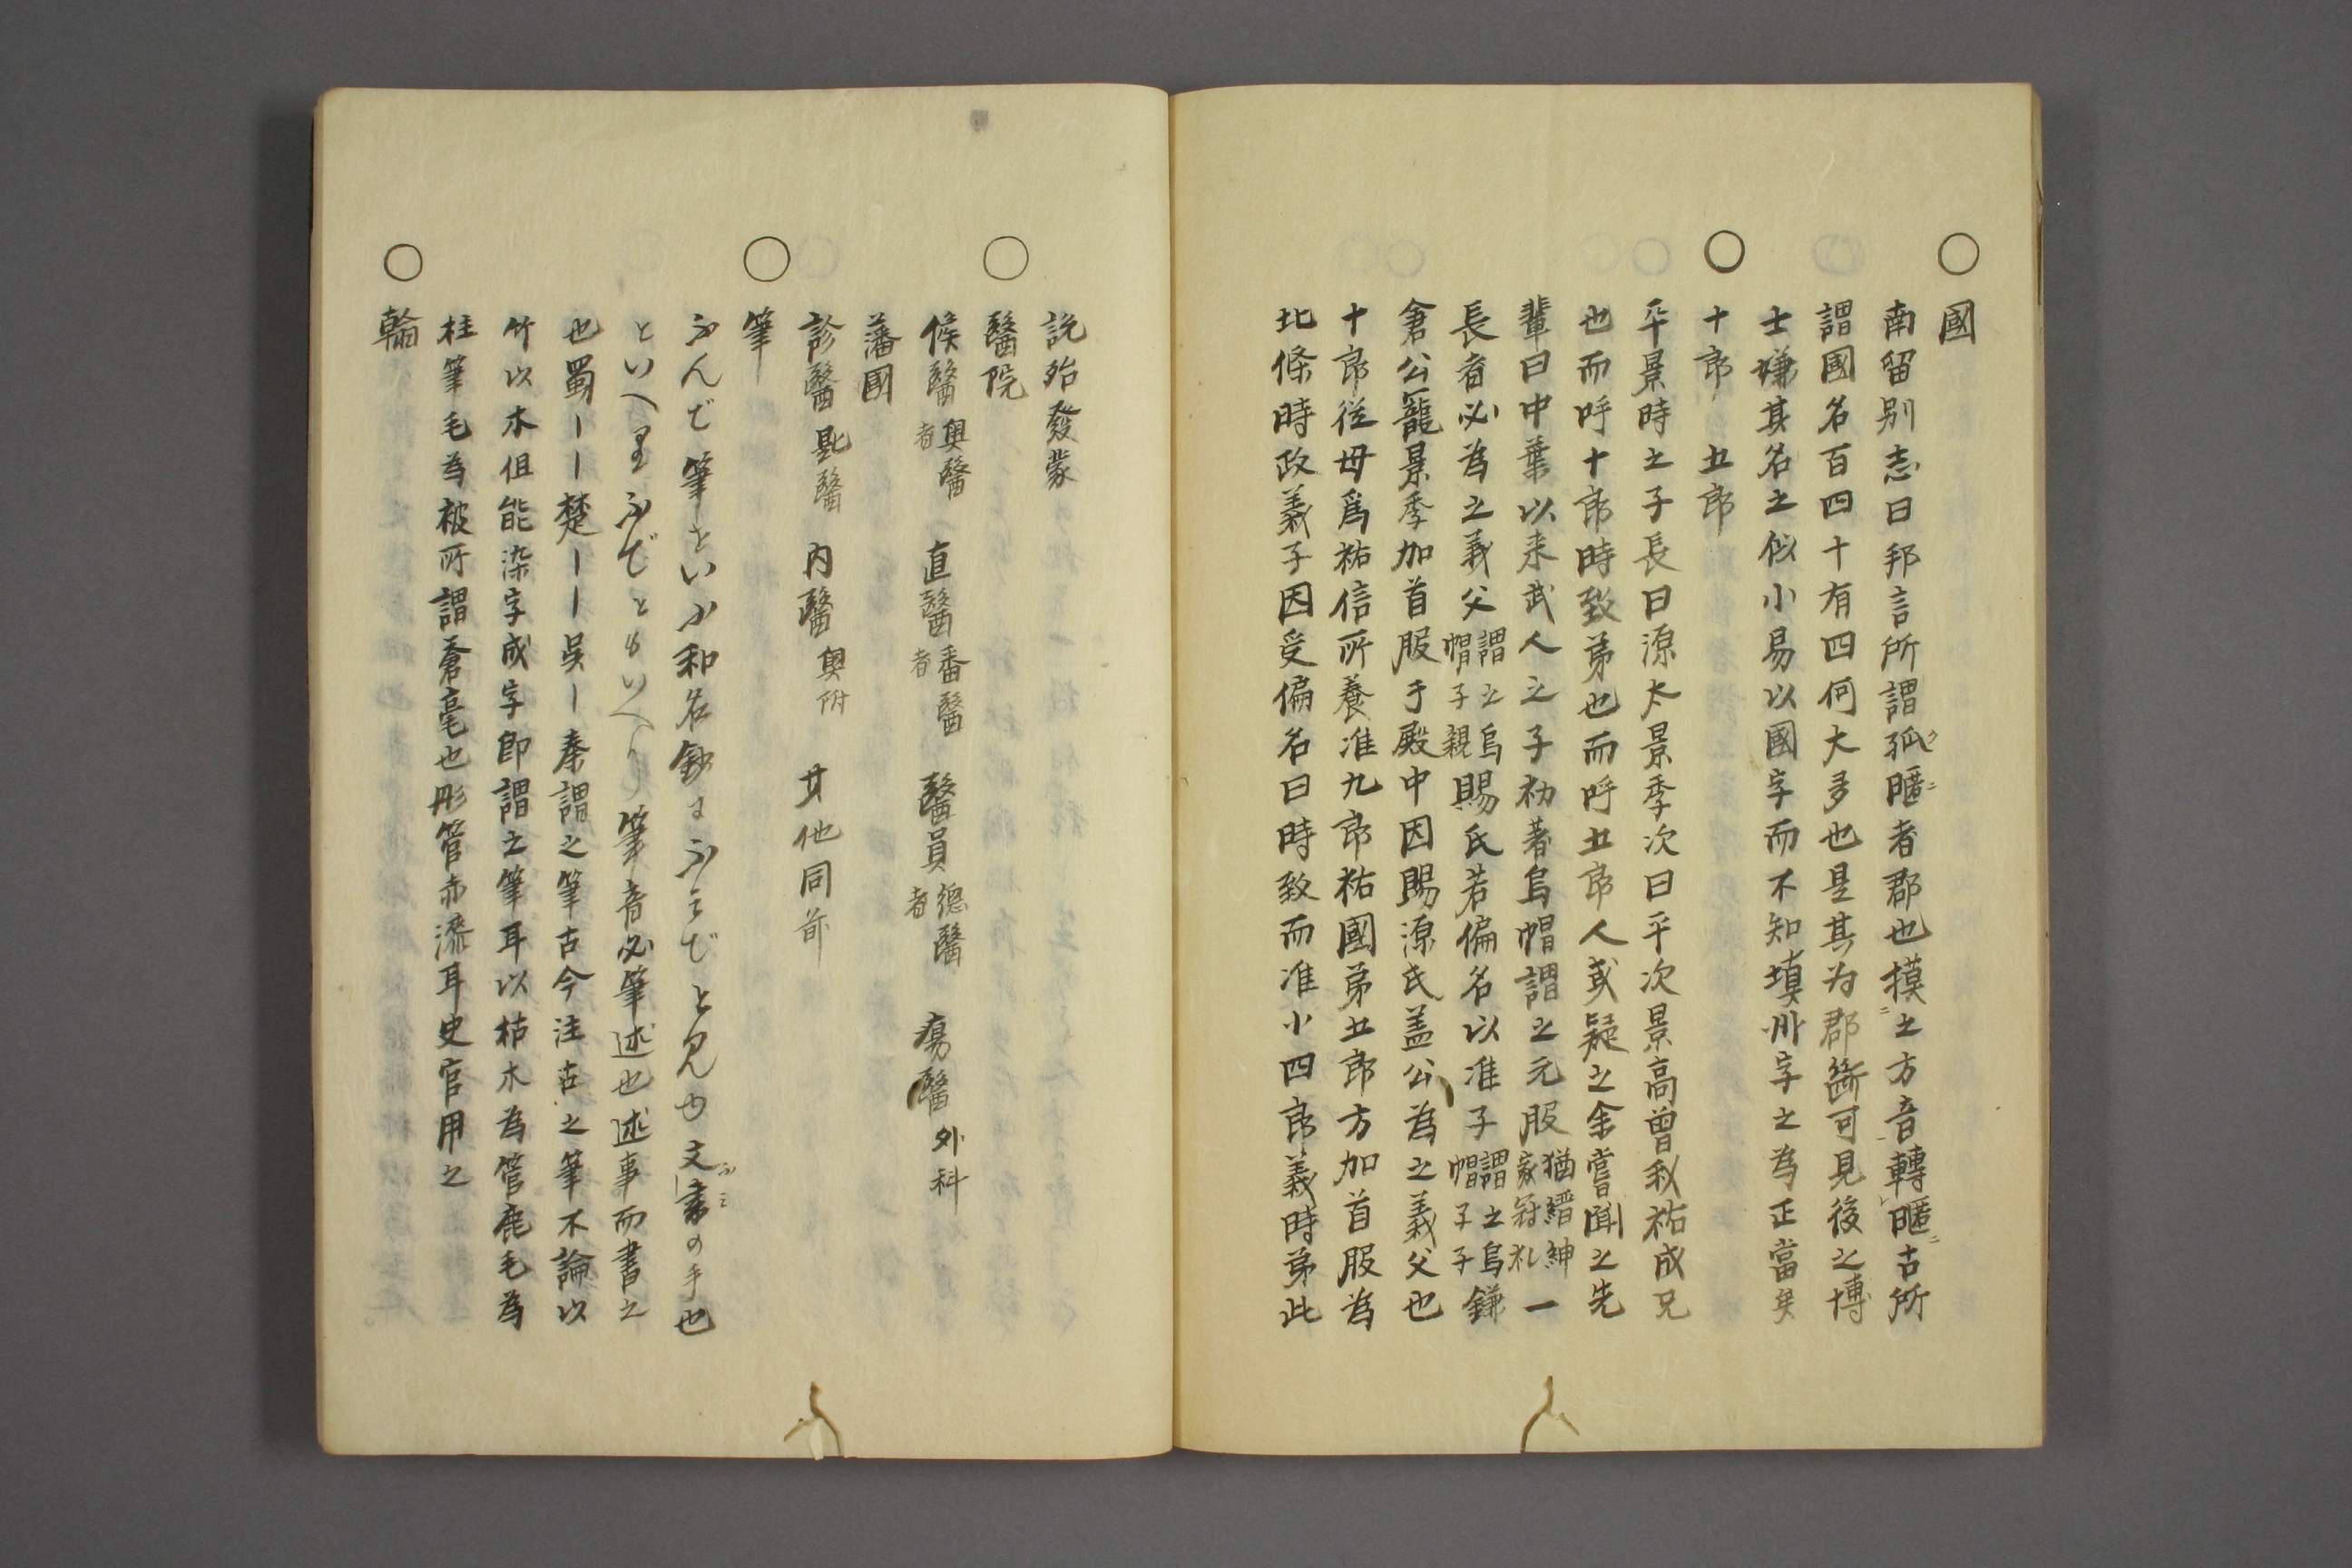 ○
國
南留別志曰邦言所謂孤暱者郡也摸之方音轉暱古所
謂國名百四十有四何大多也是其为郡斷可見後之博
士嫌其名之似小易以國字而不知填州字之為正當矣
○
十郎 五郎
平景時之子長曰源太景季次曰平次景高曽我祐成兄
也而呼十郎時致弟也而呼五郎人或疑之余嘗聞之先
輩曰中葉以来武人之子初著烏帽謂之元服猶縉紳家冠礼一
長者必為之義父謂之烏帽子親賜氏若偏名以准子謂之烏帽子子鎌
倉公寵景季加首服于殿中因賜源氏盖公為之義父也
十郎従母爲祐信所養准九郎祐國弟五郎方加首服為
北條時政義子因受偏名曰時致而准小四郎義時弟此
説殆發蒙
○
醫院
候醫奥醫者 直醫番醫者 醫員德醫者 瘍醫外科
藩國
診醫匙醫 内醫奥附 其他同前
○
筆
ふんで筆をいふ和名鈔にふみでと見ゆ文書の手也
といへりふでともいへり筆音必筆述也述事而書之
也蜀ーー楚ーー吳ー秦謂之筆古今注古之筆不論以
竹以木但能染字成字即謂之筆耳以枯木為管鹿毛為
柱筆毛為被所謂蒼毫也彤管赤漆耳史官用之
○
翰